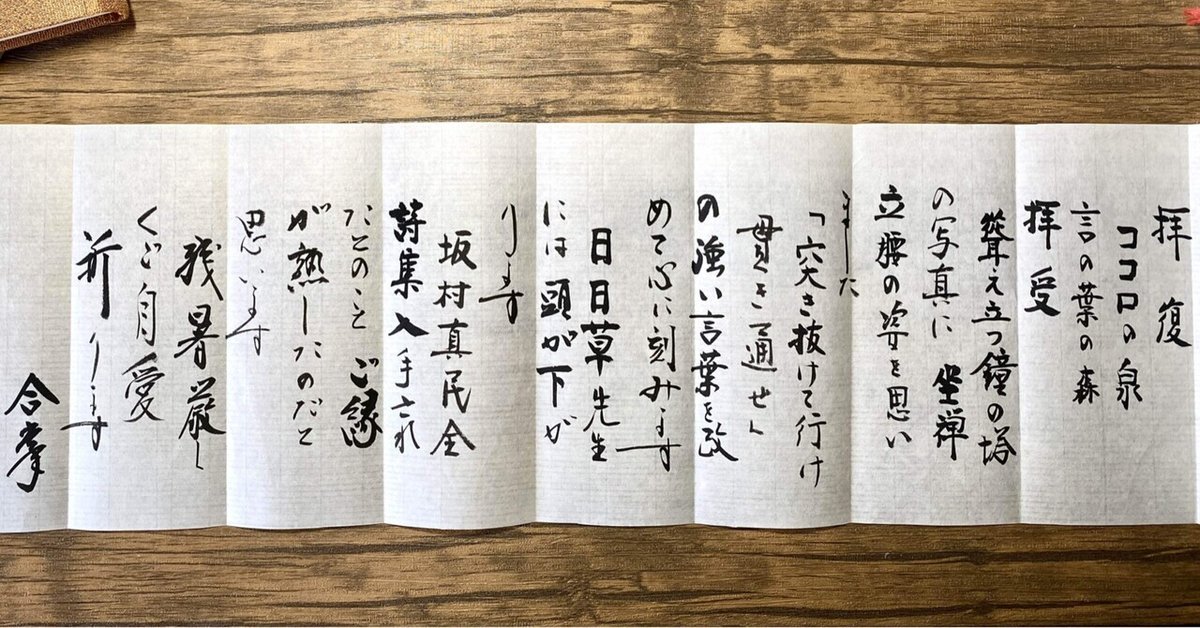 拝復
ココロの泉
言の葉の森
拝受
聳え立つ鐘の塔
の写真に 坐禅
立腰の姿を思い
ました
「突き抜けて行け
貫き通せ」
の強い言葉を改
めて心に刻みます
日日草先生
には頭が下が
ります
坂村真民全
詩集入手され
たとのこと ご縁
が熟したのだと
思います
残暑厳し
くご自愛
祈ります
合掌